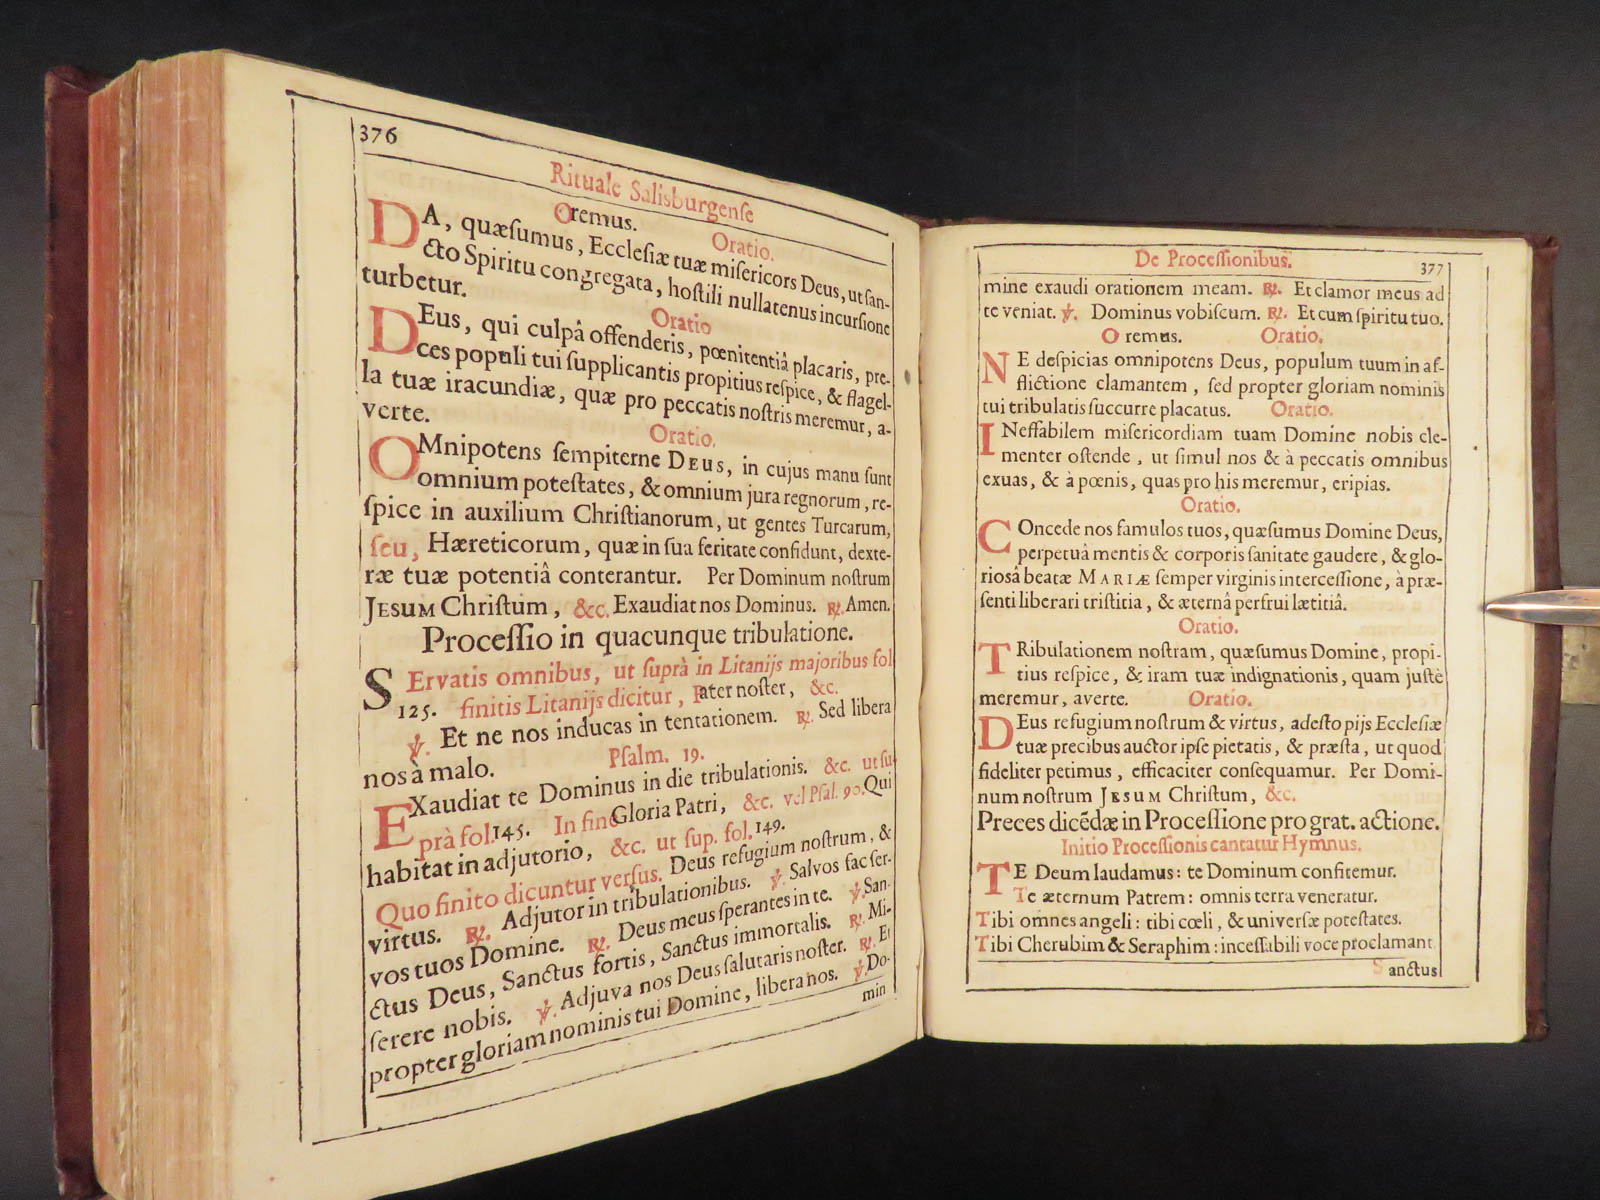 376
Rituale Salisburgenſe
Oremus. Oratio.
DA, quæſumus, Eccleſiæ tuæ miſericors Deus, ut ſan-
cto Spiritu congregata, hoſtili nullatenus incurſione
turbetur. Oratio
DEus, qui culpâ offenderis, pœnitentiâ placaris, pre-
ces populi tui ſupplicantis propitius reſpice, & flagel-
la tuæ iracundiæ, quæ pro peccatis noſtris meremur, a-
verte. Oratio.
OMnipotens ſempiterne DEUS, in cujus manu ſunt
omnium poteſtates, & omnium jura regnorum, re-
ſpice in auxilium Chriſtianorum, ut gentes Turcarum,
ſeu, Hæreticorum, quæ in ſua feritate confidunt, dexte-
ræ tuæ potentiâ conterantur. Per Dominum noſtrum
JESUM Chriſtum, &c. Exaudiat nos Dominus. ℟. Amen.
Proceſſio in quacunque tribulatione.
SErvatis omnibus, ut ſuprà in Litanijs majoribus fol
125. finitis Litanijs dicitur, Pater noſter, &c.
℣. Et ne nos inducas in tentationem. ℟. Sed libera
nos à malo. Pſalm. 19.
EXaudiat te Dominus in die tribulationis. &c. ut ſu-
prà fol. 145. In fine Gloria Patri, &c. vel Pſal. 90. Qui
habitat in adjutorio, &c. ut ſup. fol. 149.
Quo finito dicuntur verſus. Deus refugium noſtrum, &
virtus. ℟. Adjutor in tribulationibus. ℣. Salvos fac ſer-
vos tuos Domine. ℟. Deus meus ſperantes in te. ℣. San-
ctus Deus, Sanctus fortis, Sanctus immortalis. ℟. Mi-
ſerere nobis. ℣. Adjuva nos Deus ſalutaris noſter. ℟. Et
propter gloriam nominis tui Domine, libera nos. ℣. Do-
min
De Proceſſionibus. 377
mine exaudi orationem meam. ℟. Et clamor meus ad
te veniat. ℣. Dominus vobiſcum. ℟. Et cum ſpiritu tuo.
Oremus. Oratio.
NE deſpicias omnipotens Deus, populum tuum in af-
flictione clamantem, ſed propter gloriam nominis
tui tribulatis ſuccurre placatus. Oratio.
INeffabilem miſericordiam tuam Domine nobis cle-
menter oſtende, ut ſimul nos & à peccatis omnibus
exuas, & à pœnis, quas pro his meremur, eripias.
Oratio.
COncede nos famulos tuos, quæſumus Domine Deus,
perpetuâ mentis & corporis ſanitate gaudere, & glo-
rioſâ beatæ MARIÆ ſemper virginis interceſſione, à præ-
ſenti liberari triſtitia, & æternâ perfrui lætitiâ.
Oratio.
TRibulationem noſtram, quæſumus Domine, propi-
tius reſpice, & iram tuæ indignationis, quam juſtè
meremur, averte. Oratio.
DEus refugium noſtrum & virtus, adeſto pijs Eccleſiæ
tuæ precibus auctor ipſe pietatis, & præſta, ut quod
fideliter petimus, efficaciter conſequamur. Per Domi-
num noſtrum JESUM Chriſtum, &c.
Preces dicēdæ in Proceſſione pro grat. actione.
Initio Proceſſionis cantatur Hymnus.
TE Deum laudamus: te Dominum confitemur.
Te æternum Patrem: omnis terra veneratur.
Tibi omnes angeli: tibi cœli, & univerſæ poteſtates.
Tibi Cherubim & Seraphim: inceſſabili voce proclamant
Sanctus